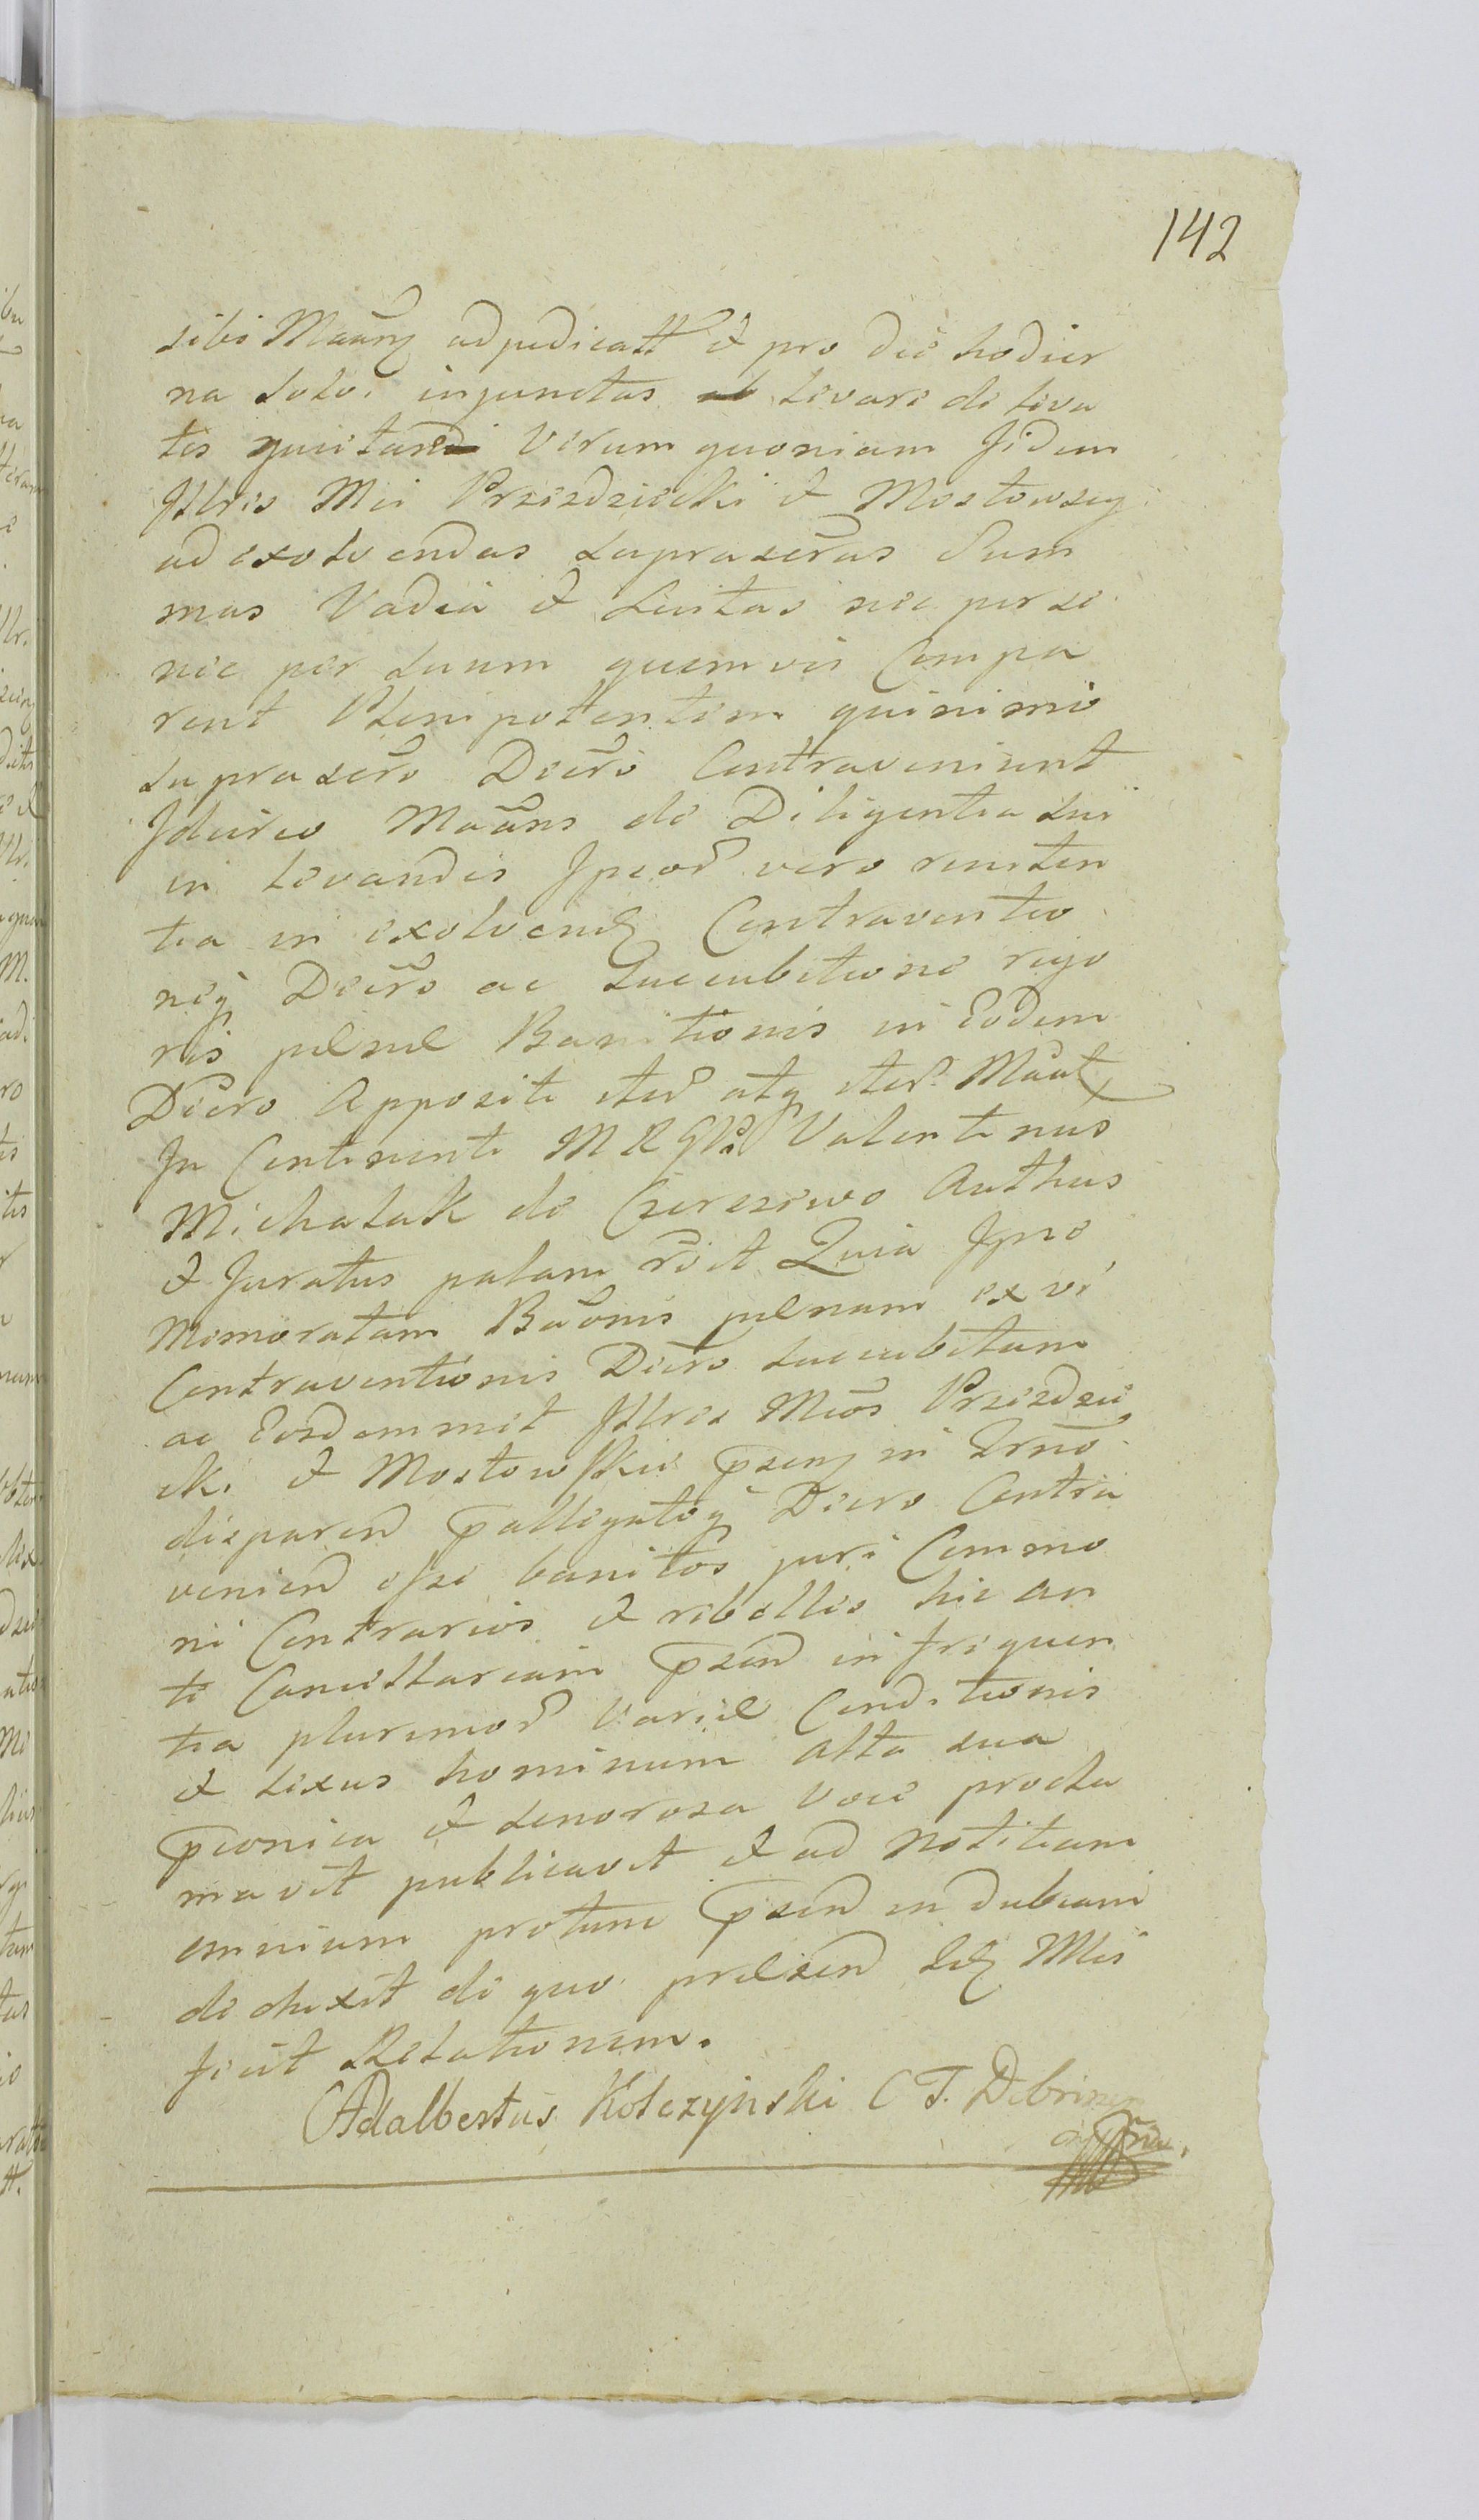 142
sibi Maãnŋ adjudicatt̃ & pro die hodier
na solv. injunctas levare de leva
tis quitand Verum quoniam Jidem
Jllres Mci Przezdziecki & Mostowscy
ad exolvendas suprascr̃as Sum
mas Vadia & Luitas nec per se
nec per suum quemvis Compa
rent Plenipotentem quinimo
suprascro Dec̃ro Contraveniunt
Jdcirco Maãns de Diligentia sui
in levandis Jpsor̃ vero reniten
tia in exolvend Contraventio
neq̃ Decr̃o ac Succubitione rigo
ris pœnæ Banitionis in Eodem
Decr̃o Appositi iter̃ atq iter̃ Maãt
In Continenti M R G Valentinus
Michalak de Czerzewo Authus
& Juratus palam r̃dit Quia Jpse
Memoratam Baõnis pœnam ex vi
Contraventionis Decr̃o succubitam
ac Eosdemmet Jllres Mcõs Przezdzie
cki & Mostowskie p̃senŋ in Trño
disparend p̃allegatoq̃ Decro Contra
veniend esse banitos juri Commu
ni Contrarios & rebelles hic an
te Cancellariam p̃send in frequen
tia plurimor̃ Variæ Conditionis
& sexus hominum alta sua
p̃conica & senorosa Voce procla
mavit publicavit & ad Notitiam
omnium protunc p̃send indubiam
deduxit de quo præsend sui Mei
fecit Relationem.
Adalbertus Kolczyński C T. Dobrinen
mpria.